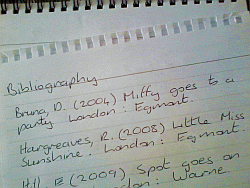 Bibliography
Bruna, D. (2004) Miffy goes to a
party. London: Egmont.
Hargreaves, R. (2008) Little Miss
Sunshine. London: Egmont.
Hill, E (2009), Spot goes on
London: Warne.